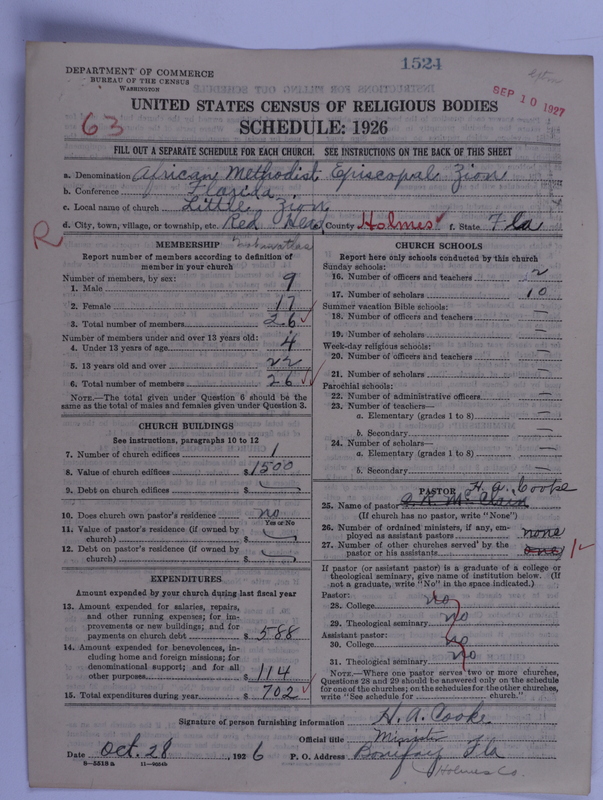 1524
DEPARTMENT OF COMMERCE
BUREAU OF THE CENSUS
WASHINGTON
SEP 10 1927
UNITED STATES CENSUS OF RELIGIOUS BODIES
63
SCHEDULE: 1926
FILL OUT A SEPARATE SCHEDULE FOR EACH CHURCH. SEE INSTRUCTIONS ON THE BACK OF THIS SHEET
a. Denomination African Methodist Episcopal Zion
b. Conference Florida
c. Local name of church Little Zion
d. City, town, village, or township, etc. Red Head County Holmes f. State Fla
R
MEMBERSHIP
Report number of members according to definition of
member in your church
Number of members, by sex:
1. Male 9
2. Female 17
3. Total number of members 26
Number of members under and over 13 years old:
4. Under 13 years of age 4
5. 13 years old and over 22
6. Total number of members 26
NOTE.—The total given under Question 6 should be the
same as the total of males and females given under Question 3.
CHURCH BUILDINGS
See instructions, paragraphs 10 to 12
7. Number of church edifices 1
8. Value of church edifices $ 1500
9. Debt on church edifices $
10. Does church own pastor's residence no
Yes or No
11. Value of pastor's residence (if owned by
church) $
12. Debt on pastor's residence (if owned by
church) $
EXPENDITURES
Amount expended by your church during last fiscal year
13. Amount expended for salaries, repairs,
and other running expenses; for im-
provements or new buildings; and for
payments on church debt $ 588
14. Amount expended for benevolences, in-
cluding home and foreign missions; for
denominational support; and for all
other purposes $ 114
15. Total expenditures during year $ 702
CHURCH SCHOOLS
Report here only schools conducted by this church
Sunday schools:
16. Number of officers and teachers 2
17. Number of scholars 10
Summer vacation Bible schools:
18. Number of officers and teachers —
19. Number of scholars —
Week-day religious schools:
20. Number of officers and teachers —
21. Number of scholars —
Parochial schools:
22. Number of administrative officers —
23. Number of teachers—
a. Elementary (grades 1 to 8) —
b. Secondary —
24. Number of scholars—
a. Elementary (grades 1 to 8) —
b. Secondary —
PASTOR H. A. Cooke
25. Name of pastor
(If church has no pastor, write "None")
26. Number of ordained ministers, if any, em-
ployed as assistant pastors none
27. Number of other churches served by the
pastor or his assistants one 1
If pastor (or assistant pastor) is a graduate of a college or
theological seminary, give name of institution below. (If
not a graduate, write "No" in the space indicated.)
Pastor:
28. College no
29. Theological seminary no
Assistant pastor:
30. College no
31. Theological seminary no
NOTE.—Where one pastor serves two or more churches,
Questions 28 and 29 should be answered only on the schedule
for one of the churches; on the schedules for the other churches,
write "See schedule for church."
Signature of person furnishing information H. A. Cooke
Official title Minister
Date Oct. 28, 1926 P. O. Address Bonifay Fla
8-5518a
Holmes Co.